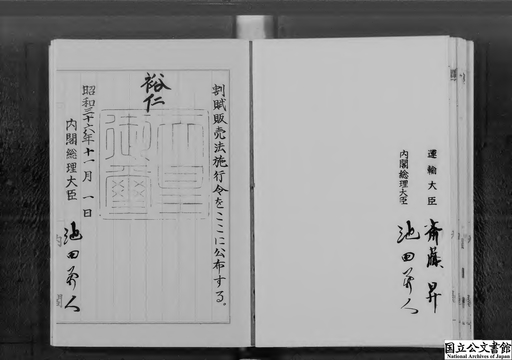 運輸大臣 斎藤昇
内閣総理大臣 池田勇人
割賦販売法施行令をここに公布する。
裕仁
天皇御璽
昭和三十六年十一月一日
内閣総理大臣 池田勇人
国立公文書館
National Archives of Japan